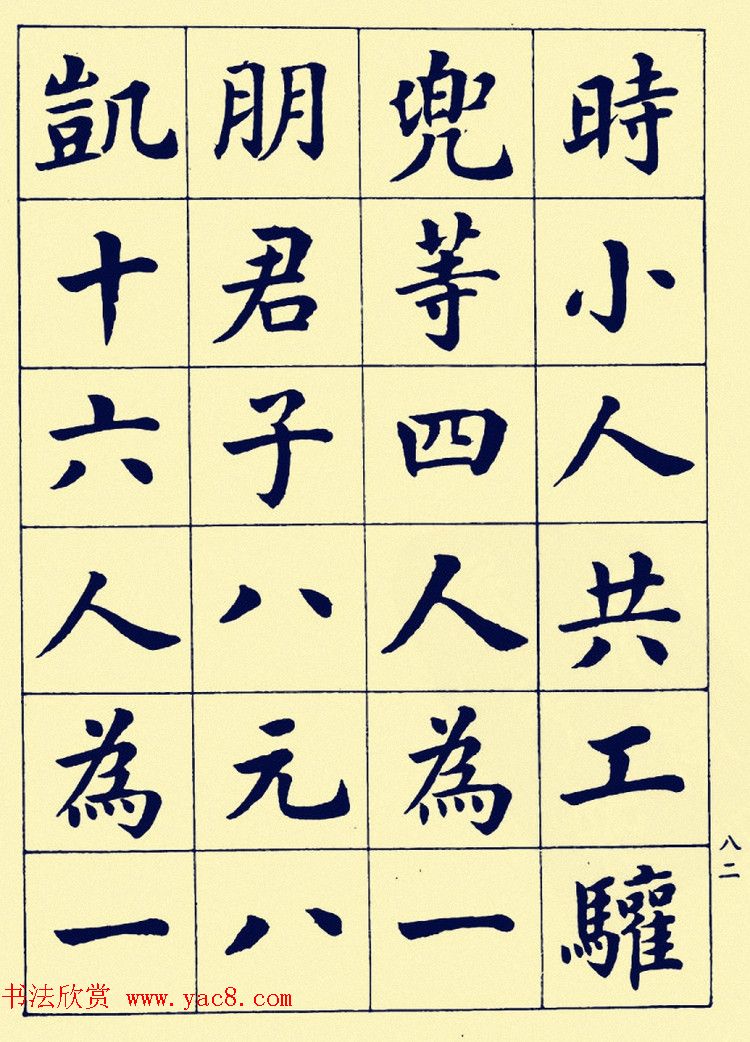 時小人共工驩
兜等四人為一
朋君子八元八
凱十六人為一
八二
书法欣赏 www.yac8.com